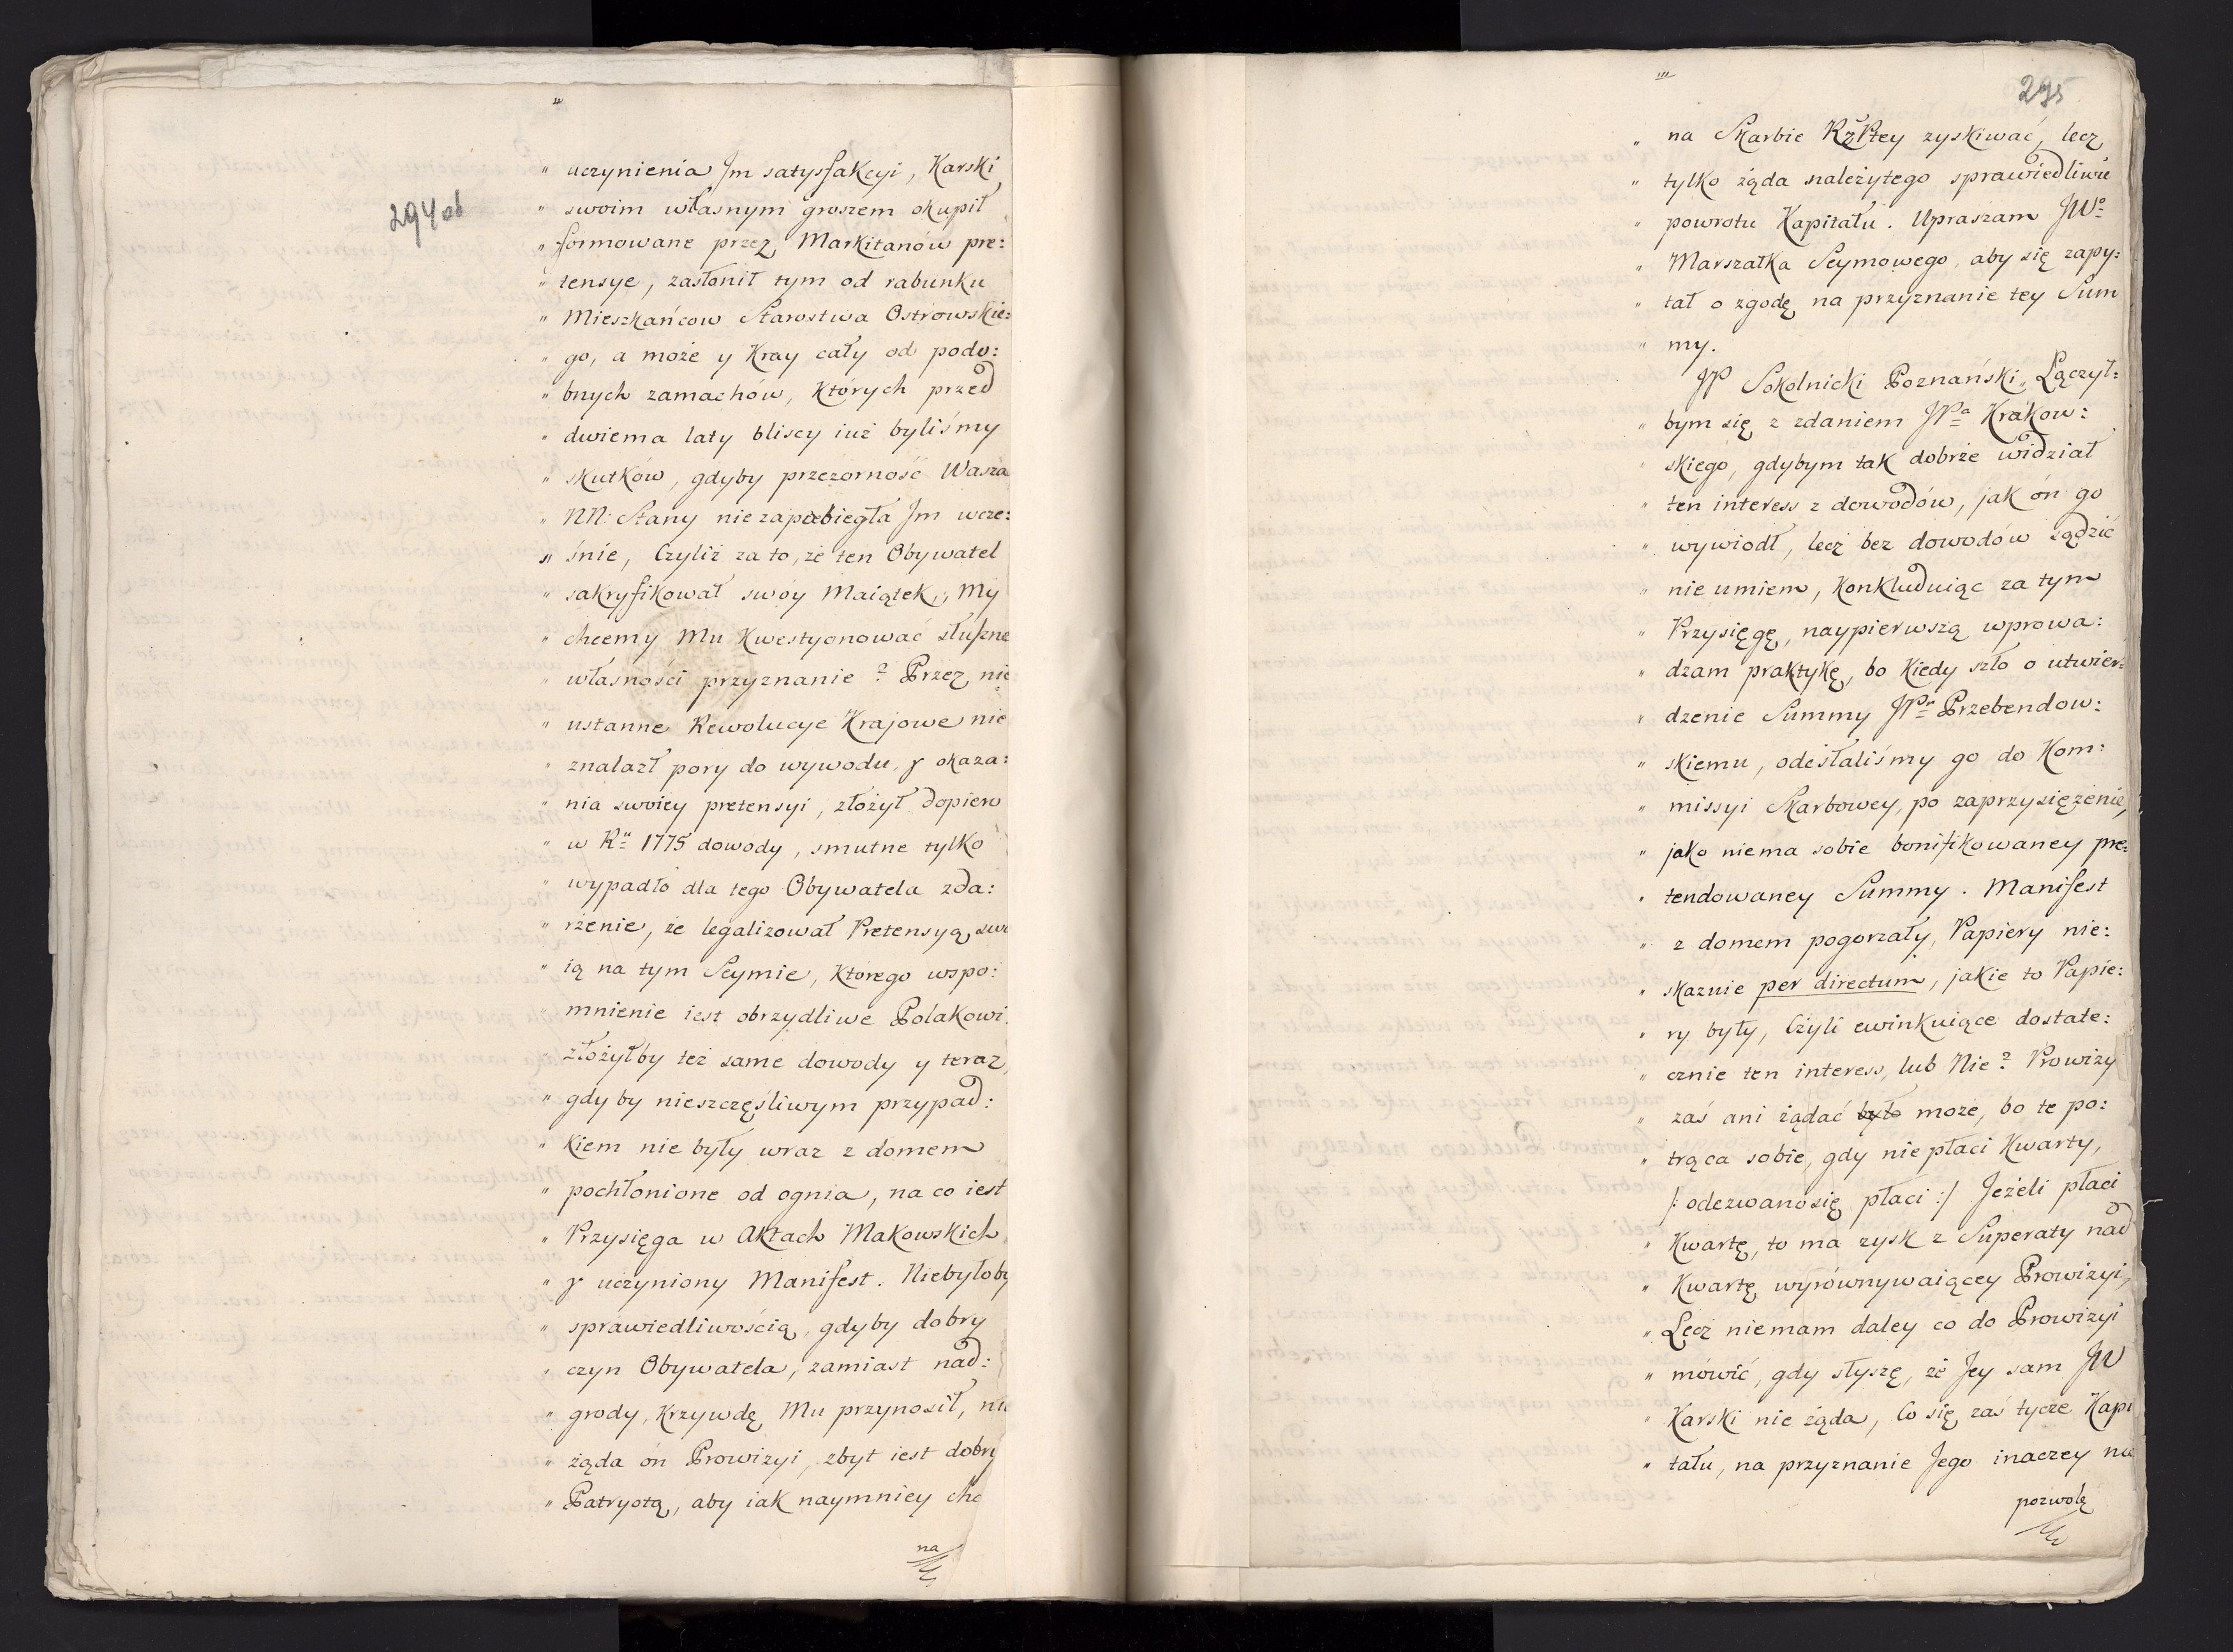 294 od
„ uczynienia Jm satysfakcyi, Karski
„ swoim własnym groszem okupił
„ formowane przez Markitanów pre:
„ tensye, zasłonił tym od rabunku
„ Mieszkańcow Starostwa Ostrowskie:
„ go, a może y Kray cały od podo:
„ bnych zamachów, których przed
„ dwiema laty bliscy iuż byliśmy
„ skutków, gdyby przezorność Wasza
„ NN: Stany nie zapobiegła Jm wcze:
„ śnie, Czyliż za to, że ten Obywatel
„ sakryfikował swóy Maiątek, My
„ chcemy Mu Kwestyonować słuszne
„ własności przyznanie? Przez nie
„ ustanne Rewolucye Krajowe nie
„ znalazł pory do wywodu, y okaza:
„ nia swoiey pretensyi, złożył dopiero
„ w Rᵘ 1775 dowody, smutne tylko
„ wypadło dla tego Obywatela zda:
„ rżenie, że legalizował Pretensyą swo
„ ią na tym Seymie, którego wspo:
mnienie iest obrzydliwe Polakowi.
złożyłby też same dowody y teraz,
„ gdyby nieszczęśliwym przypad:
„ kiem nie były wraz z domem
„ pochłonione od ognia, na co iest
„ Przysięga w Aktach Makowskich
„ y uczyniony Manifest. Niebyłoby
„ sprawiedliwością, gdyby dobry
„ czyn Obywatela, zamiast nad:
„ grody, Krzywdę Mu przynosił, nie
„ żąda ón Prowizyi, zbyt iest dobry
„ Patryotą, aby iak naymniey chc
na
295
„ na Skarbie RzPtey zyskiwać, lecz
„ tylko żąda należytego sprawiedliwie
„ powrotu Kapitału. Upraszam JWº
„ Marszałka Seymowego, aby się zapy:
„ tał o zgodę na przyznanie tey Sum
„ my.
JP Sokolnicki Poznański „ Łączył:
„ bym się z zdaniem JPª Krakow:
„ skiego, gdybym tak dobrze widział
„ ten interess z dowodów, jak ón go
„ wywiodł, lecz bez dowodów sądzić
„ nie umiem, Konkluduiąc za tym
„ Przysięgę, naypierwszą wprowa:
„ dzam praktykę, bo Kiedy szło o utwier:
„ dzenie Summy JPᵘ Przebendow:
„ skiemu, odesłaliśmy go do Kom:
„ missyi Skarbowey, po zaprzysiężenie,
„ jako niema sobie bonifikowaney pre:
„ tendowaney Summy. Manifest
„ z domem pogorzały, Papiery nie:
„ skaznie per directum, jakie to Papie:
„ ry były, Czyli ewinkuiące dostate:
„ cznie ten interess, lub Nie? Prowizy
„ zaś ani żądać było może, bo te po:
„ trąca sobie, gdy nie płaci Kwarty,
/: odezwano się płaci :/ Jeżeli płaci
„ Kwartę, to ma zysk z Superaty nad
„ Kwartę wyrównywaiącey Prowizyi,
„ Lecz niemam daley co do Prowizyi
„ mówić, gdy słyszę, że Jey sam JW
„ Karski nie żąda, Co się zaś tycze Kapi
„ tału, na przyznanie Jego inaczey nie
pozwolę